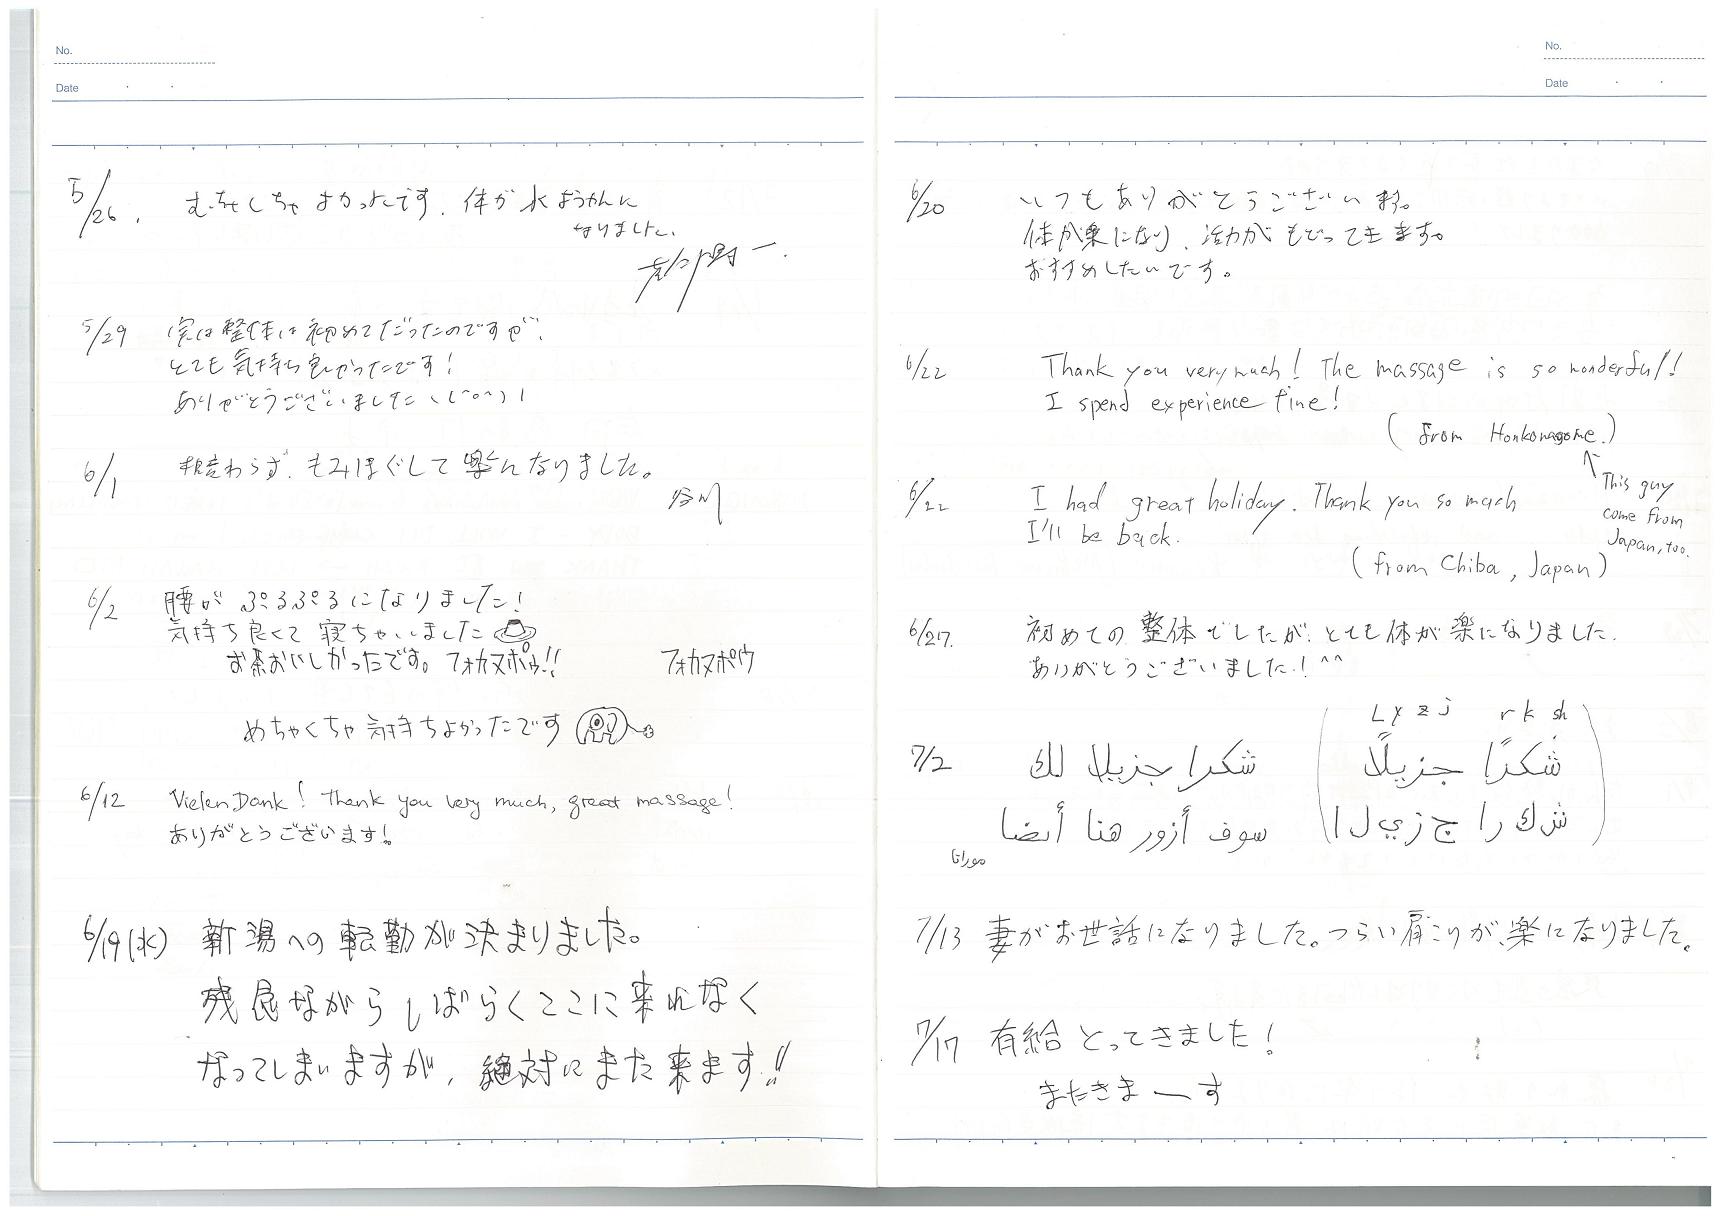 No.
Date
5/26. むちゃくちゃよかったです. 体が水ようかんに
なりました.
5/29 実は整体は初めてだったのですが、
とても気持ち良かったです!
ありがとうございました
6/1 相変わらず. もみほぐして楽になりました。
谷川
6/2 腰がぷるぷるになりました!
気持ち良くて寝ちゃいました
お茶おいしかったです。フォカヌポゥ!! フォカヌポゥ
めちゃくちゃ気持ちよかったです
6/12 Vielen Dank! Thank you very much, great massage!
ありがとうございます!
6/19(水) 新潟への転勤が決まりました。
残念ながらしばらくここに来れなく
なってしまいますが、絶対にまた来ます!!
No.
Date
6/20 いつもありがとうございます。
体が楽になり、活力がもどってきます。
おすすめしたいです。
6/22 Thank you very much! The massage is so wonderful!
I spend experience time!
(from Honkonagome.)
↑
This guy
come from
Japan, too.
6/22 I had great holiday. Thank you so much
I'll be back.
(from Chiba, Japan)
6/27. 初めての整体でしたが、とても体が楽になりました.
ありがとうございました!^^
L y z j r k sh
7/2 شكرا جزيلا لك (شكرًا جزيلًا
سوف أزور هنا أيضا ش ك ر ا ج ز ي ل ا)
7/13 妻がお世話になりました。つらい肩こりが、楽になりました。
7/17 有給とってきました!
またきまーす